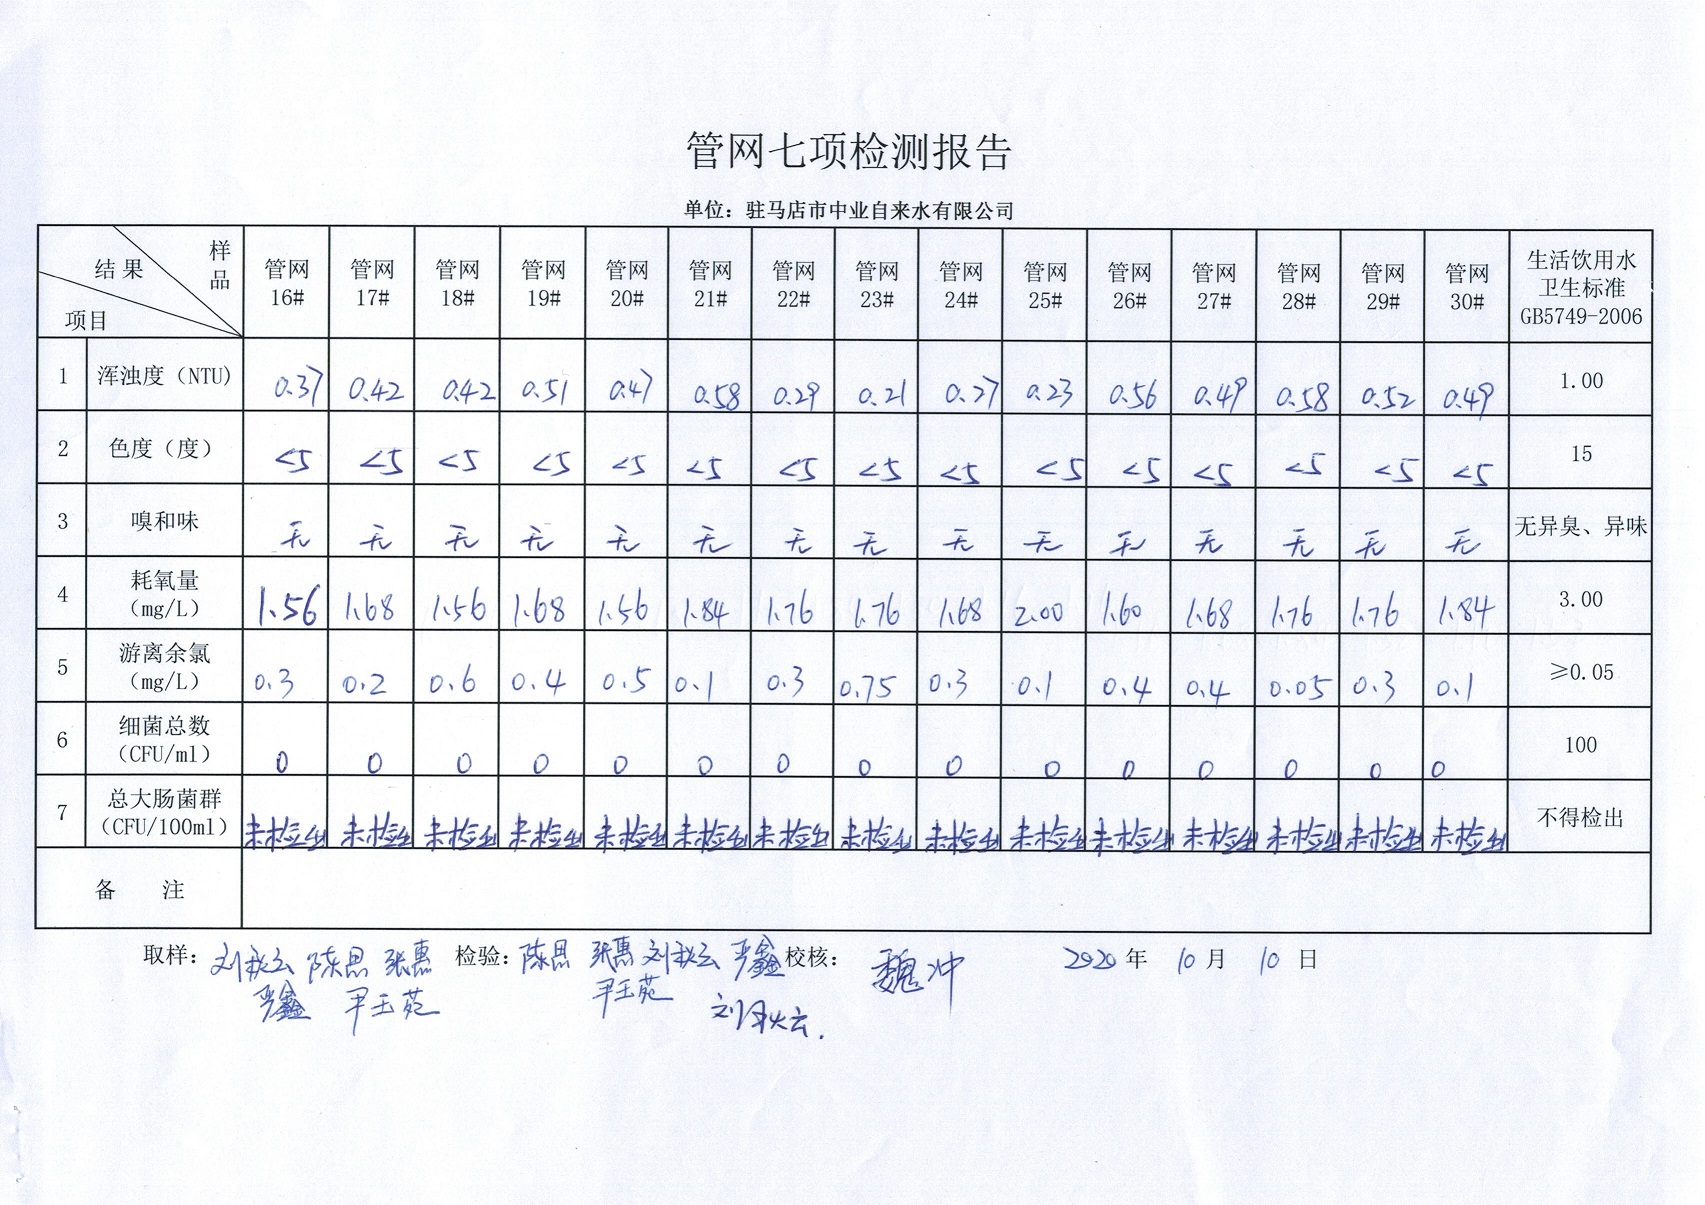 管网七项检测报告
单位：驻马店市中业自来水有限公司
样品 结果 项目 管网16# 管网17# 管网18# 管网19# 管网20# 管网21# 管网22# 管网23# 管网24# 管网25# 管网26# 管网27# 管网28# 管网29# 管网30# 生活饮用水卫生标准GB5749-2006
1 浑浊度（NTU） 0.37 0.42 0.42 0.51 0.47 0.58 0.29 0.21 0.27 0.23 0.56 0.49 0.58 0.52 0.49 1.00
2 色度（度） <5 <5 <5 <5 <5 <5 <5 <5 <5 <5 <5 <5 <5 <5 <5 15
3 嗅和味 无 无 无 无 无 无 无 无 无 无 无 无 无 无 无 无异臭、异味
4 耗氧量（mg/L） 1.56 1.68 1.56 1.68 1.56 1.84 1.76 1.76 1.68 2.00 1.60 1.68 1.76 1.76 1.84 3.00
5 游离余氯（mg/L） 0.3 0.2 0.6 0.4 0.5 0.1 0.3 0.75 0.3 0.1 0.4 0.4 0.05 0.3 0.1 ≥0.05
6 细菌总数（CFU/ml） 0 0 0 0 0 0 0 0 0 0 0 0 0 0 0 100
7 总大肠菌群（CFU/100ml） 未检出 未检出 未检出 未检出 未检出 未检出 未检出 未检出 未检出 未检出 未检出 未检出 未检出 未检出 未检出 不得检出
备 注
取样： 陈思 张惠 检验：陈思 张惠 严鑫 校核：魏冲 2020 年 10 月 10 日
严鑫 尹玉苑 尹玉苑